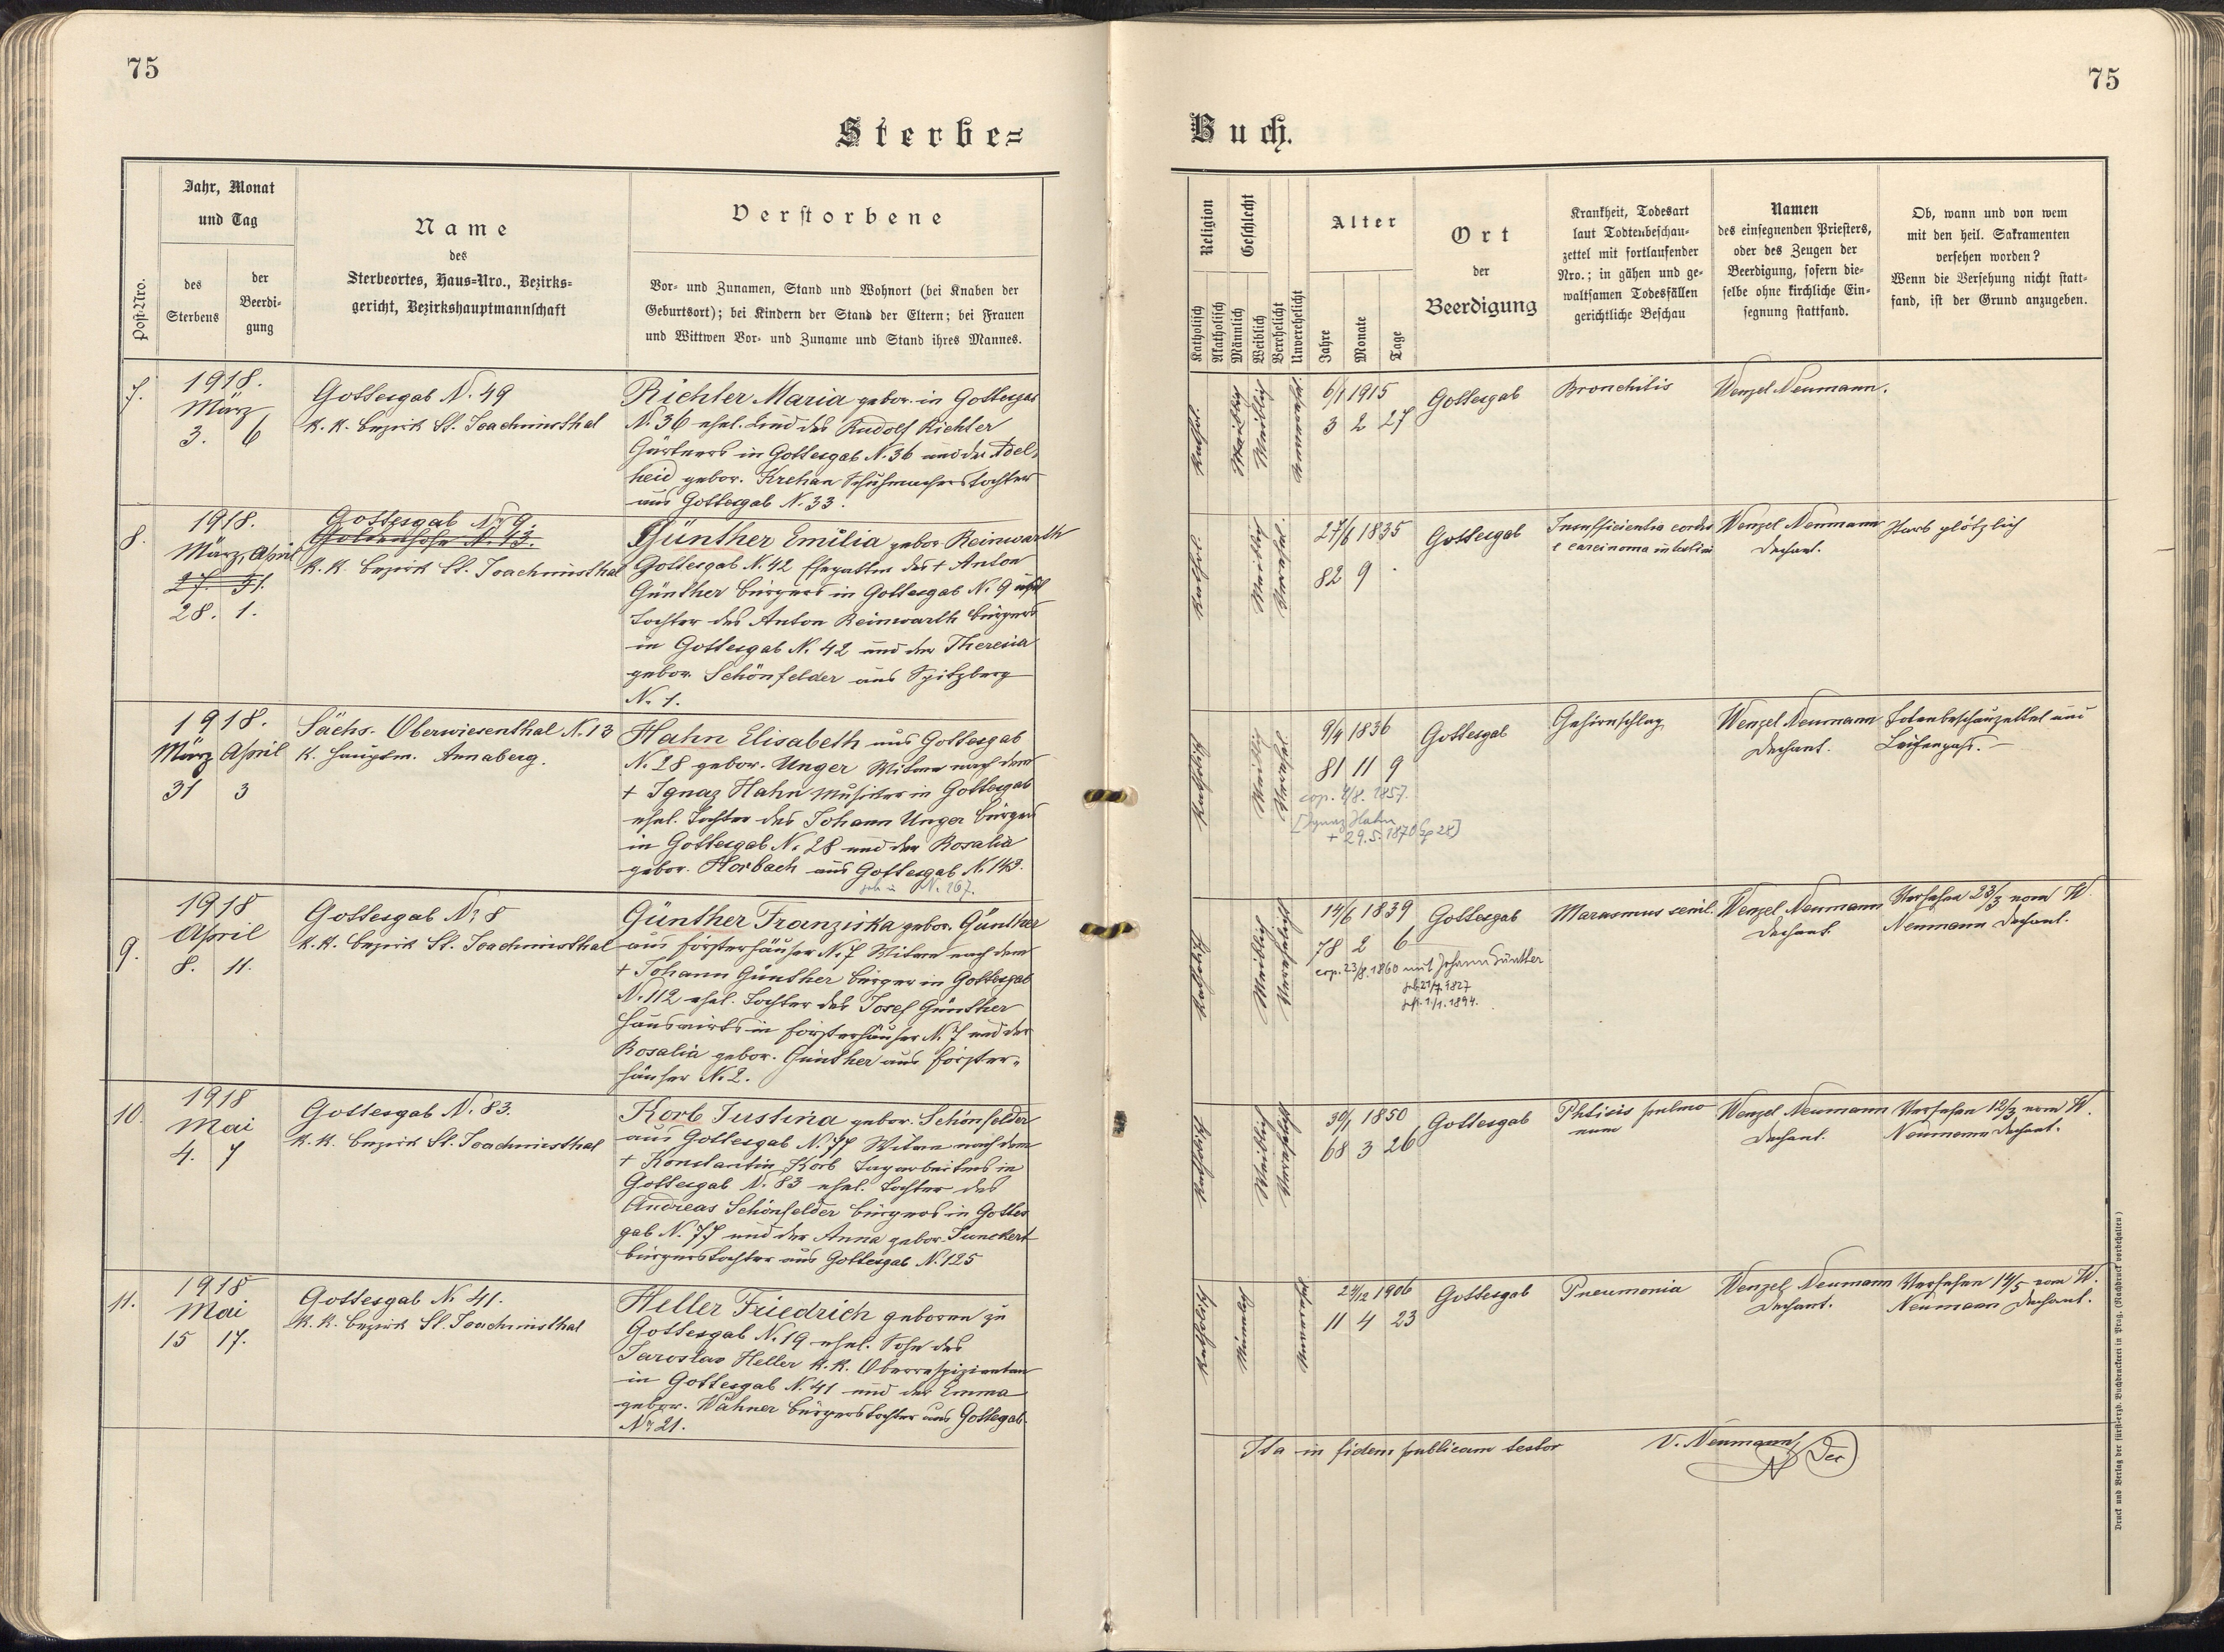 75
75
Sterbe=
Buch.
Post-Nro.
Jahr, Monat
und Tag
des
Sterbens
der
Beerdi-
gung
Name
des
Sterbeortes, Haus=Nro., Bezirks=
gericht, Bezirkshauptmannschaft
Verstorbene
Vor= und Zunamen, Stand und Wohnort (bei Knaben der
Geburtsort); bei Kindern der Stand der Eltern; bei Frauen
und Wittwen Vor= und Zuname und Stand ihres Mannes.
Religion
Katholisch
Akatholisch
Geschlecht
Männlich
Weiblich
Verehelicht
Unverehelicht
Alter
Jahre
Monate
Tage
Ort
der
Beerdigung
Krankheit, Todesart
laut Todtenbeschau=
zettel mit fortlaufender
Nro.; in gähen und ge=
waltsamen Todesfällen
gerichtliche Beschau
Namen
des einsegnenden Priesters,
oder des Zeugen der
Beerdigung, sofern die=
selbe ohne kirchliche Ein=
segnung stattfand.
Ob, wann und von wem
mit den heil. Sakramenten
versehen worden?
Wenn die Versehung nicht statt=
fand, ist der Grund anzugeben.
7.
1918.
März
3. 6
Gottesgab N. 49
k. k. Bezirk St. Joachimsthal
Richter Maria gebor. in Gottesgab
N. 36 ehel. Kind des Rudolf Richter
Gärtners in Gottesgab N. 36 und der Adel=
heid gebor. Krehan Schuhmacherstochter
aus Gottesgab N. 33.
Kathol.
Weiblich
Weiblich
6/1 1915
3 2 27
Gottesgab
Bronchitis
Wenzel Neumann.
8.
1918.
März April
27. 31.
28. 1.
Gottesgab N. 9.
Goldenhöhe N. 43.
k. k. Bezirk St. Joachimsthal
Günther Emilia gebor. Reinwarth
Gottesgab N. 42 Ehegattin des + Anton
Günther Bürgers in Gottesgab N. 9 ehel
Tochter des Anton Reinwarth Bürgers
in Gottesgab N. 42 und der Theresia
gebor. Schönfelder aus Spitzberg
N. 1.
Weiblich
27/6 1835
82 9 .
Gottesgab
Insufficientia cordis
Wenzel Neumann
Dechant.
Starb plötzlich
1918.
März April
31 3
Sächs. Oberwiesenthal N. 13
k. Hauptm. Annaberg.
Hahn Elisabeth aus Gottesgab
N. 28 gebor. Unger Witwe nach dem
+ Ignaz Hahn Musiker in Gottesgab
ehel. Tochter des Johann Unger Bürgers
in Gottesgab N. 28 und der Rosalia
gebor. Horbach aus Gottesgab N. 143.
geb in N. 167.
Weiblich
9/4 1836
81 11 9
cop. 4/8. 1857.
[Ignaz Hahn
+ 29.5.1870
Gottesgab
Gehirnschlag
Wenzel Neumann
Dechant.
Totenbeschauzettel und
Leichenpass. —
9.
1918
April
8. 11.
Gottesgab N. 8
k. k. Bezirk St. Joachimsthal
Günther Franziska gebor. Günther
aus Försterhäuser N. 7 Witwe nach dem
+ Johann Günther Bürger in Gottesgab
N. 112 ehel. Tochter des Josef Günther
Hauswirts in Försterhäuser N. 7 und der
Rosalia gebor. Günther aus Förster=
häuser N. 2.
Weiblich
14/6 1839
78 2 6
cop. 23/8. 1860 mit Johann Günther
geb. 21/7. 1827
gest. 1/1. 1894.
Gottesgab
Marasmus senil.
Wenzel Neumann
Dechant.
Versehen 23/3 vom W.
Neumann Dechant.
10.
1918
Mai
4. 7
Gottesgab N. 83.
k. k. Bezirk St. Joachimsthal
Korb Justina gebor. Schönfelder
aus Gottesgab N. 77 Witwe nach dem
+ Konstantin Korb Tagarbeiters in
Gottesgab N. 83 ehel. Tochter des
Andreas Schönfelder Bürgers in Gottes
gab N. 77 und der Anna gebor.
Bürgerstochter aus Gottesgab N. 125
Weiblich
30/1 1850
68 3 26
Gottesgab
Phtisis pulmo
num
Wenzel Neumann
Dechant.
Versehen 12/3 vom W.
Neumann Dechant.
11.
1918
Mai
15 17.
Gottesgab N. 41.
k. k. Bezirk St. Joachimsthal
Heller Friedrich geboren zu
Gottesgab N. 19 ehel. Sohn des
Jaroslav Heller k. k. Oberrespizienten
in Gottesgab N. 41 und der Emma
gebor. Wähner Bürgerstochter aus Gottesgab
N. 21.
Katholisch
Männlich
24/12 1906
11 4 23
Gottesgab
Pneumonia
Wenzel Neumann
Dechant.
Versehen 14/5 vom W.
Neumann Dechant.
Ita in fidem publicam testor
V. Neumann
Dec
Druck und Verlag der fürsterzb. Buchdruckerei in Prag. (Nachdruck vorbehalten)